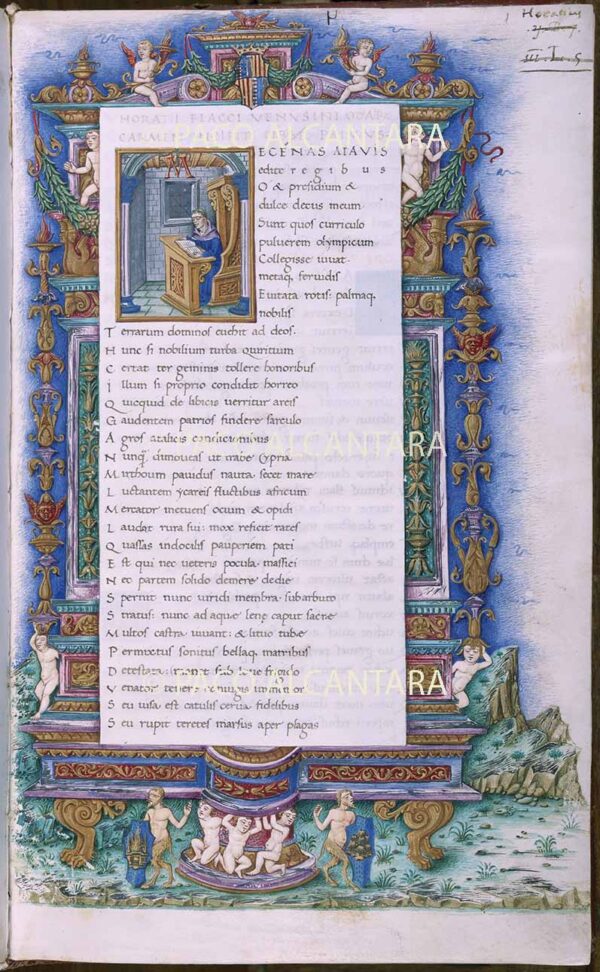 Horatius
III. L. 5
HORATII FLACCI VENUSINI
CARMEN
PACO ALCANTARA
M
ECENAS ATAVIS
edite regibus
O & presidium &
dulce decus meum
Sunt quos curriculo
pulverem olympicum
Collegisse iuvat.
metaq. fervidis
Evitata rotis: palmaq.
nobilis
Terrarum dominos evehit ad deos.
Hunc si nobilium turba Quiritium
Certat ter geminis tollere honoribus
Illum si proprio condidit horreo
Quicquid de libicis verritur areis
Gaudentem patrios findere sarculo
Agros atalicis condicionibus
PACO ALCANTARA
Nunq dimoveas ut trabe cypria
Mirthoum pavidus nauta secet mare
Luctantem ycareis fluctibus africum
Mercator metuens ocium & opidi
Laudat rura sui: mox reficit rates
Quassas indocilis pauperiem pati
Est qui nec veteris pocula massici
Nec partem solido demere de die
Spernit nunc viridi membra sub arbuto
Stratus: nunc ad aque lene caput sacre
Multos castra iuvant: & lituo tube
Permixtus sonitus bellaq. matribus
Detestata manet sub Iove frigido
PACO ALCANTARA
Venator tenere coniugis immemor
Seu visa est catulis cerva fidelibus
Seu rupit teretes marsus aper plagas